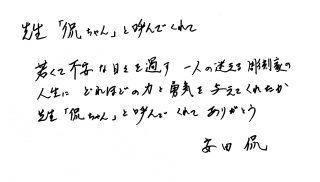 先生「侃ちゃん」と呼んでくれて
若くて不安な日々を過す 一人の迷える彫刻家の
人生に どれほどの力と勇気を与えてくれたか
先生「侃ちゃん」と呼んでくれて ありがとう
安田 侃